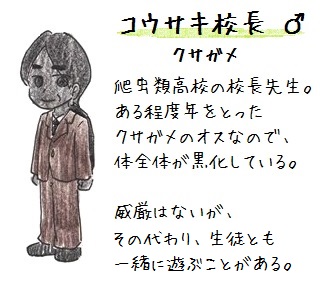 コウサキ校長 ♂
クサガメ
爬虫類高校の校長先生。
ある程度年をとった
クサガメのオスなので、
体全体が黒化している。
威厳はないが、
その代わり、生徒とも
一緒に遊ぶことがある。